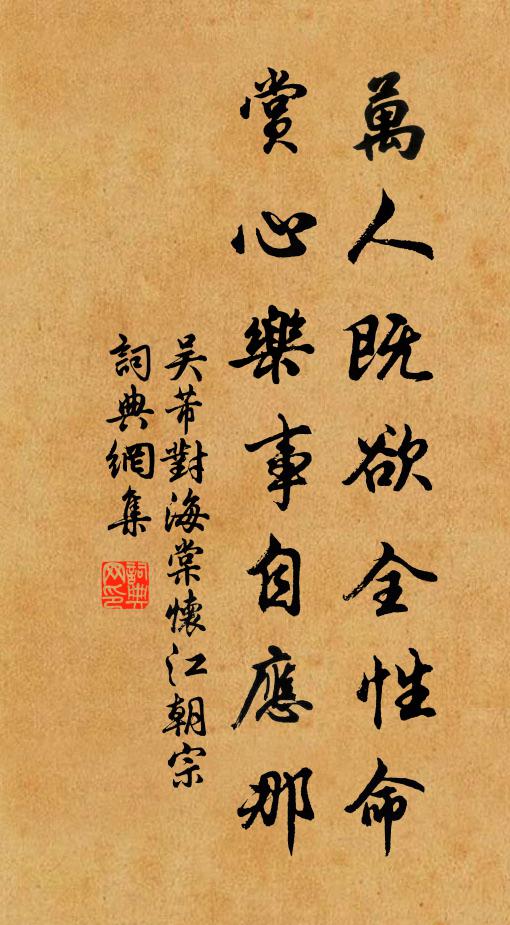 萬人既欲全性命
賞心樂事自應那
吴芾對海棠懷江朝宗
詞典網集
詞典網印